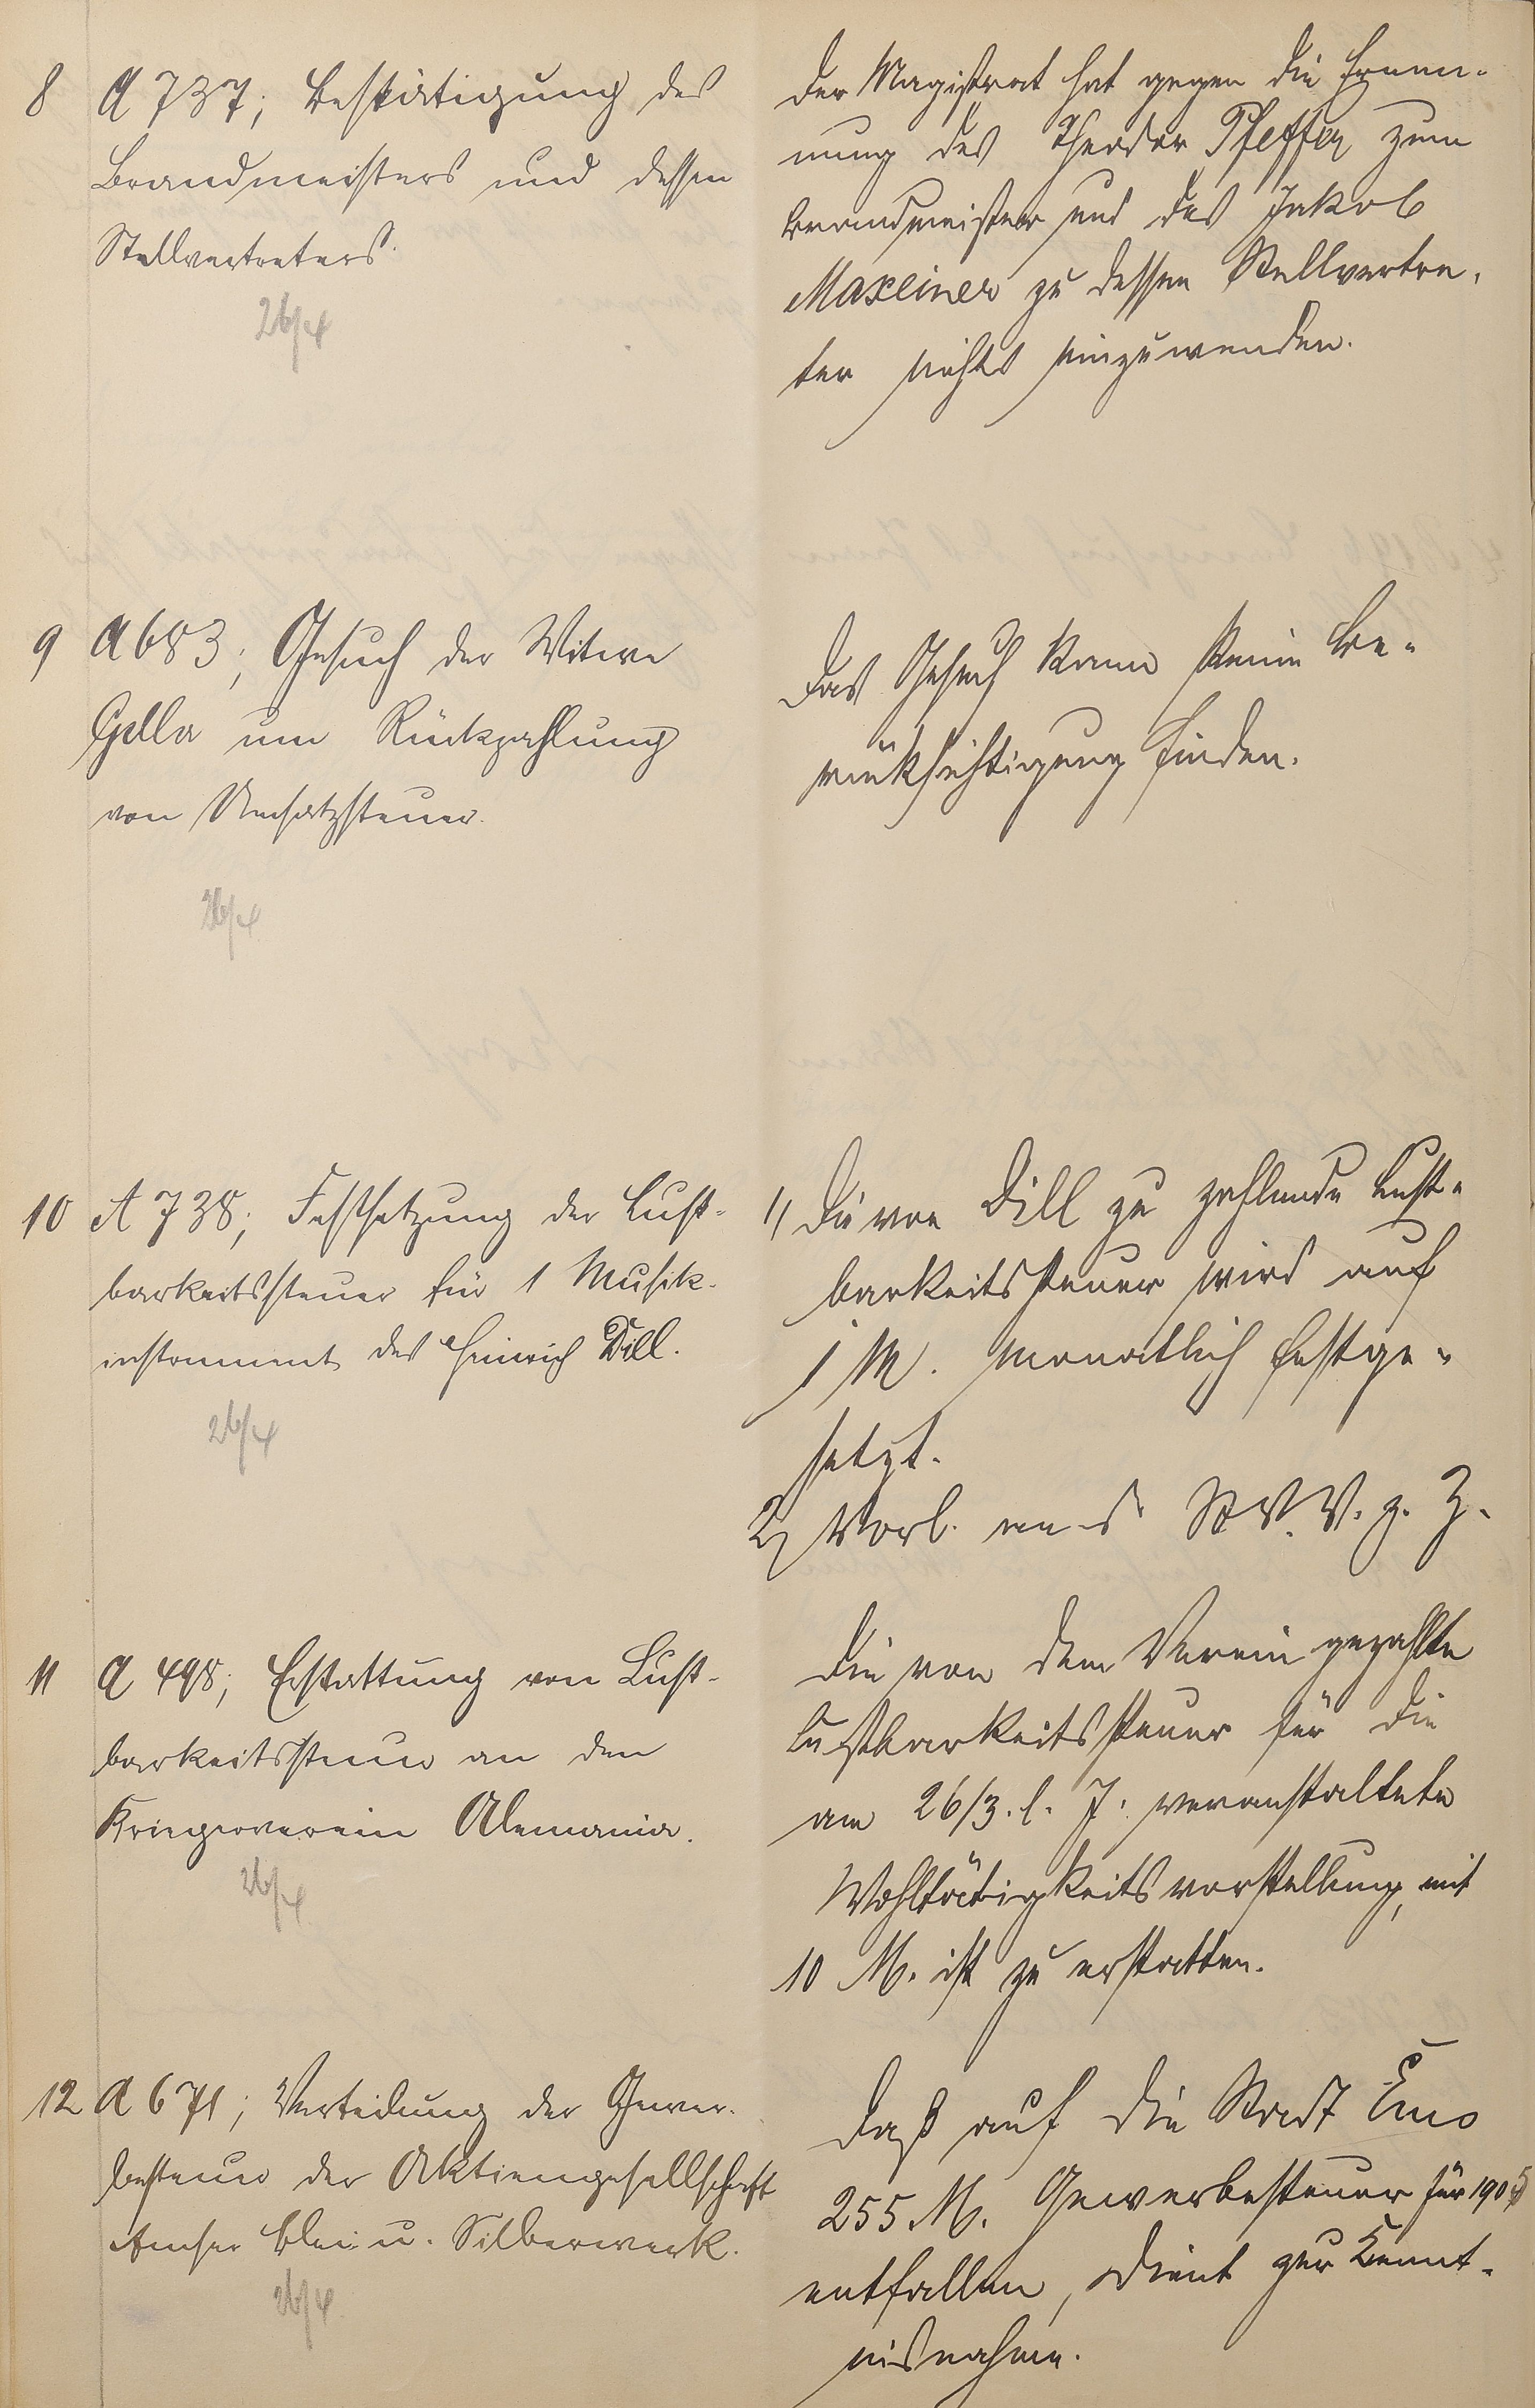 8 A 737; Bestätigung des
Brandmeisters und dessen
Stellvertreters.
26/4
Der Magistrat hat gegen die Ernen-
nung des Theodor Pfeffer zum
Brandmeister und des Jakob
Maxeiner zu dessen Stellvertre-
ter nichts einzuwenden.
9 A 683; Gesuch der Witwe
Gella um Rückzahlung
von Umsatzsteuer.
26/4
Das Gesuch kann keine Be-
rücksichtigung finden.
10 A 738; Festsetzung der Lust-
barkeitssteuer für 1 Musik-
instrument des Heinrich Dill.
26/4
1) Die von Dill zu zahlende Lust-
barkeitssteuer wird auf
1 M. monatlich festge-
setzt.
2) Vorl. an d. St. V. V. z. Z.
11 A 498; Erstattung von Lust-
barkeitssteuer an den
Kriegerverein Alemania.
26/4
Die von dem Verein gezahlte
Lustbarkeitssteuer für die
am 26/3. l. J. veranstaltete
Wohltätigkeitsvorstellung, mit
10 M. ist zu erstatten.
12 A 671; Verteilung der Gewer-
besteuer der Aktiengesellschaft
Emser Blei u. Silberwerk.
26/4
Daß auf die Stadt Ems
255 M. Gewerbesteuer für 1905
entfallen, dient zur Kennt-
nisnahme.